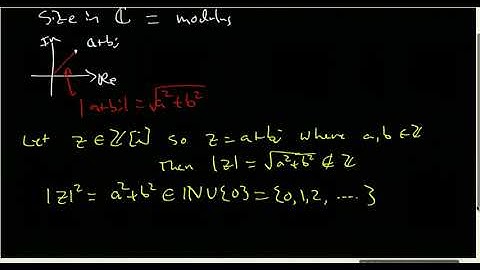 Size in ℂ = modulus
Im
a+bi
Re
|a+bi| = √a²+b²
Let z ∈ ℤ[i] so z = a+bi where a, b ∈ ℤ
Then |z| = √a²+b² ∉ ℤ
|z|² = a²+b² ∈ ℕ∪{0} = {0,1,2, ....}